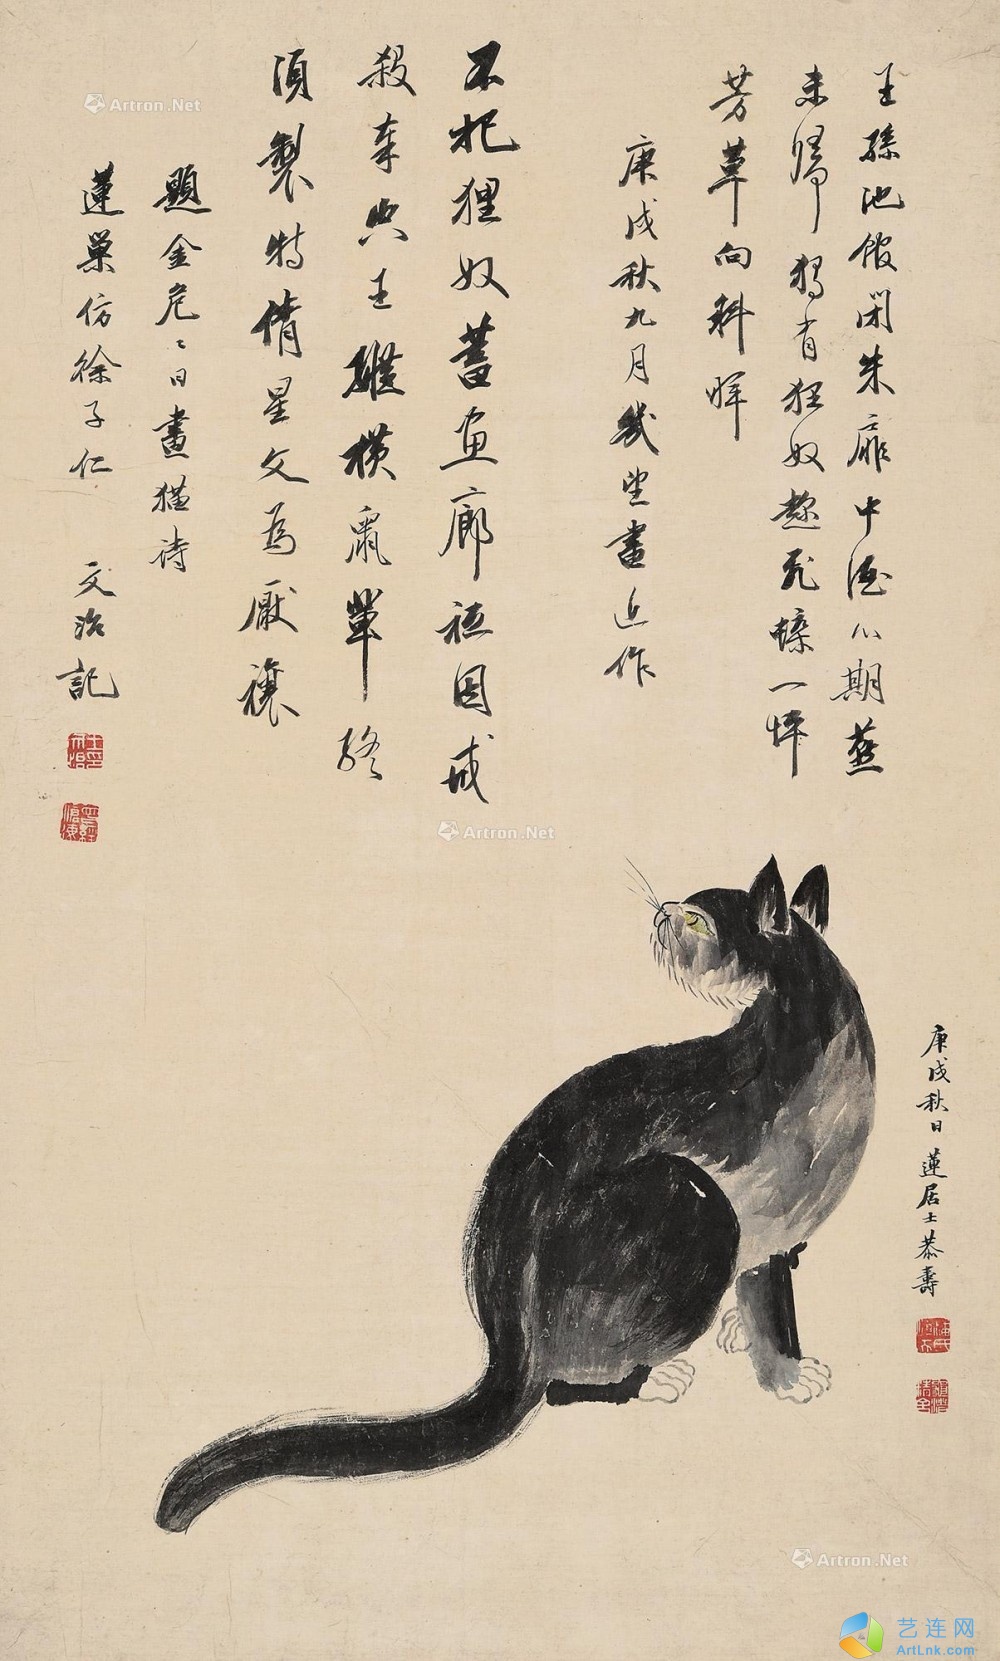 王孫池館閉朱扉中酒心期燕
未歸獨有狸奴趁飛蝶一畦
芳草向斜暉
庚戌秋九月幾望書近作
不把狸奴蓄画廊祗因戒
殺奉空王縱橫鼠輩終
須製特倩星文為厭禳
題金危危日畫猫诗
蓮巢仿徐子仁 文治記
庚戌秋日 蓮居士恭壽
Artron.Net
Artron.Net
Artron.Net
艺连网
ArtLnk.com